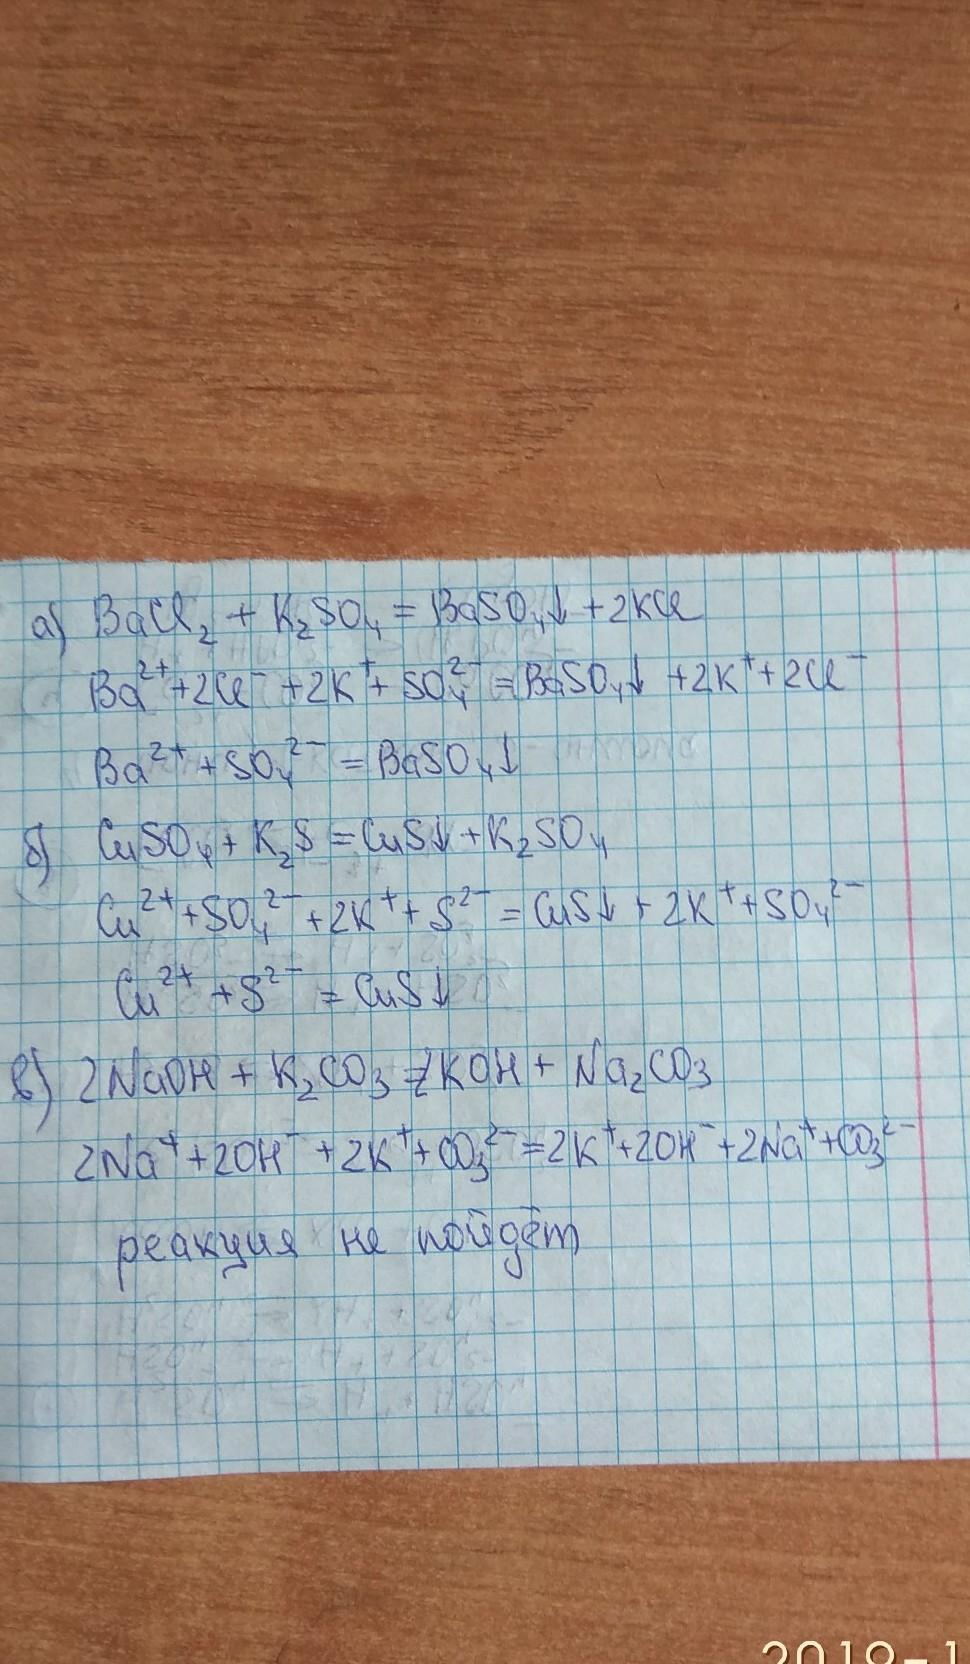 а) BaCl₂ + K₂SO₄ = BaSO₄↓ + 2KCl
Ba²⁺ + 2Cl⁻ + 2K⁺ + SO₄²⁻ = BaSO₄↓ + 2K⁺ + 2Cl⁻
Ba²⁺ + SO₄²⁻ = BaSO₄↓
б) CuSO₄ + K₂S = CuS↓ + K₂SO₄
Cu²⁺ + SO₄²⁻ + 2K⁺ + S²⁻ = CuS↓ + 2K⁺ + SO₄²⁻
Cu²⁺ + S²⁻ = CuS↓
в) 2NaOH + K₂CO₃ ≠ 2KOH + Na₂CO₃
2Na⁺ + 2OH⁻ + 2K⁺ + CO₃²⁻ = 2K⁺ + 2OH⁻ + 2Na⁺ + CO₃²⁻
реакция не пойдёт
2019-1